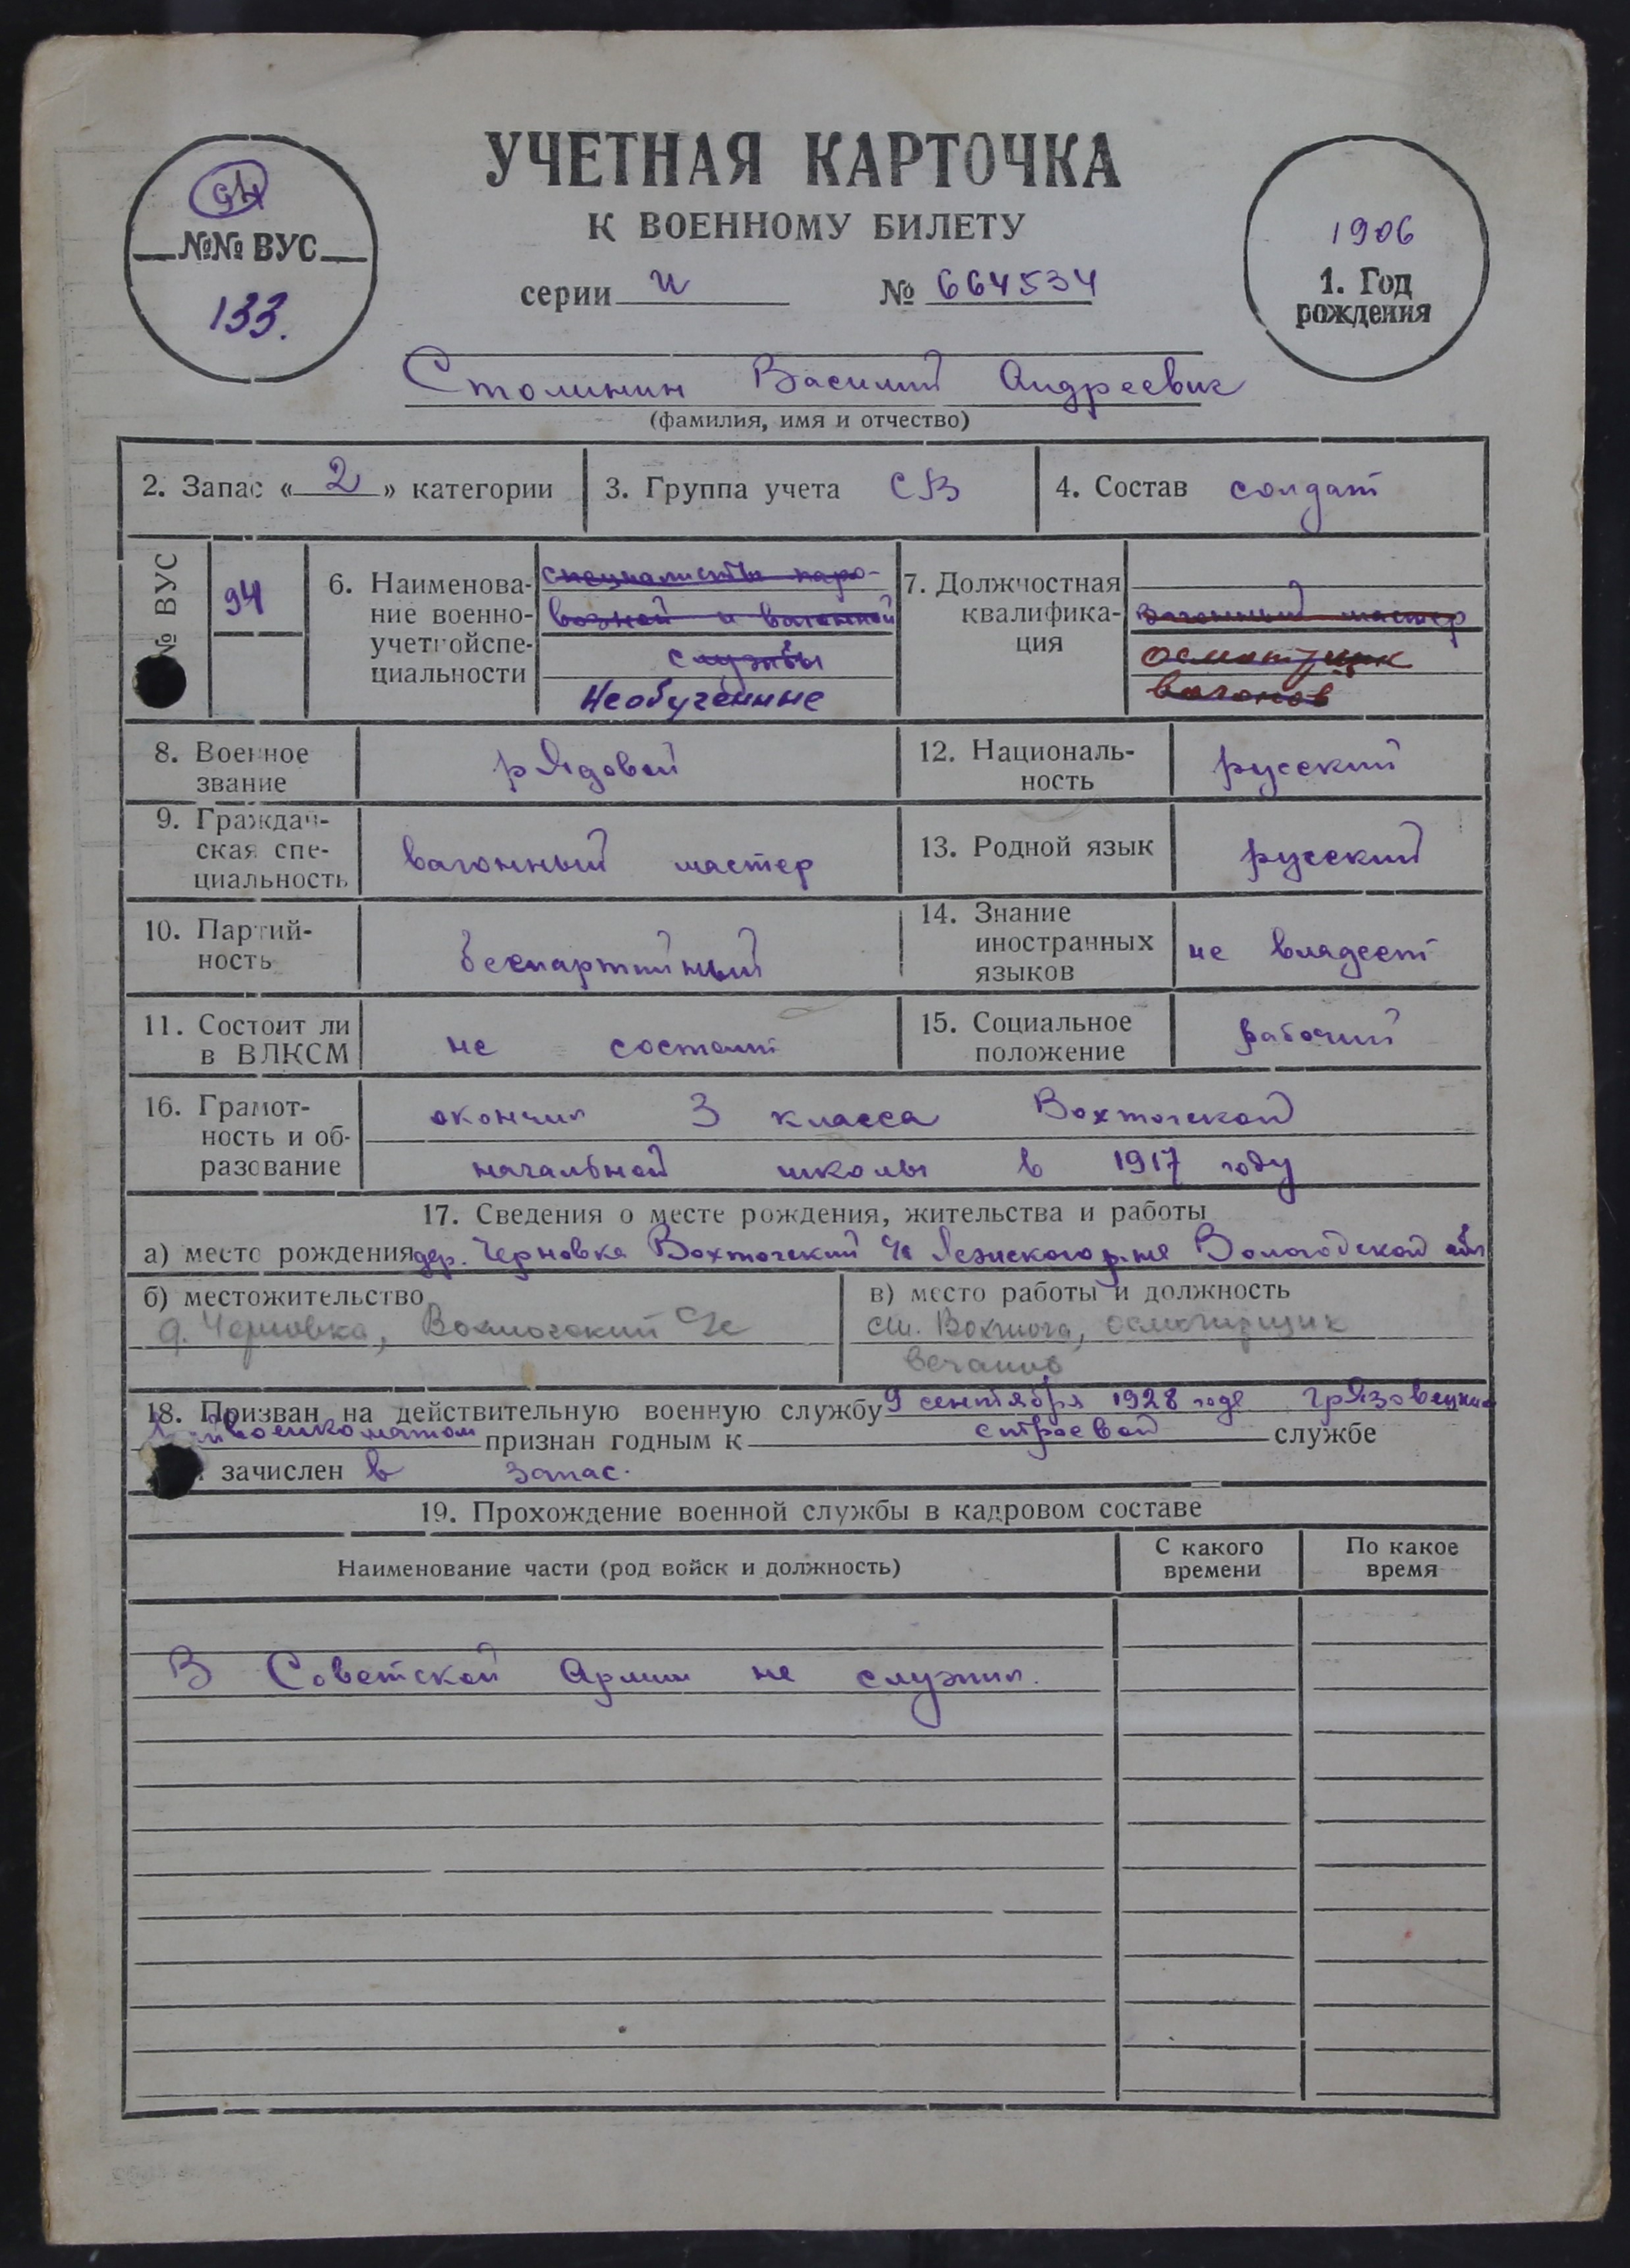 УЧЕТНАЯ КАРТОЧКА
К ВОЕННОМУ БИЛЕТУ
серии и № 664534
94
№№ ВУС
133.
1906
1. Год
рождения
Столинин Василий Андреевич
(фамилия, имя и отчество)
2. Запас « 2 » категории
3. Группа учета СВ
4. Состав солдат
№ ВУС
94
6. Наименова-
ние военно-
учетнойспе-
циальности
специалисты паро-
возной и вагонной
службы
Необученные
7. Должностная
квалифика-
ция
вагонный мастер
осмотрщик
вагонов
8. Военное
звание
рядовой
12. Националь-
ность
русский
9. Граждан-
ская спе-
циальность
вагонный мастер
13. Родной язык
русский
10. Партий-
ность
беспартийный
14. Знание
иностранных
языков
не владеет
11. Состоит ли
в ВЛКСМ
не состоит
15. Социальное
положение
рабочий
16. Грамот-
ность и об-
разование
окончил 3 класса Вохтогской
начальной школы в 1917 году
17. Сведения о месте рождения, жительства и работы
а) место рождения дер. Черновка Вохтогский с/с Лежского р-на Вологодской обл
б) местожительство
д. Черновка, Вохтогский с/с
в) место работы и должность
ст. Вохтога, осмотрщик
вагонов
18. Призван на действительную военную службу 9 сентября 1928 года Грязовецким
райвоенкоматом признан годным к строевой службе
и зачислен в запас.
19. Прохождение военной службы в кадровом составе
Наименование части (род войск и должность)
С какого
времени
По какое
время
В Советской Армии не служил.